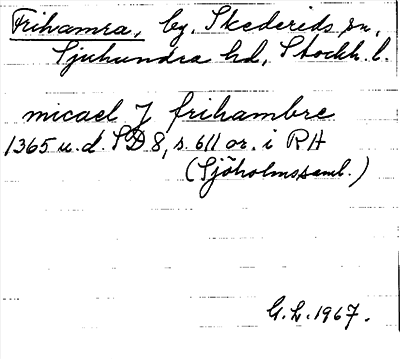 Frihamra, by, Skederids sn,
Sjuhundra hd, Stockh. l.
micael J frihambre
1365 u.d. SD 8, s. 611 or. i RA
(Sjöholmssaml.)
G.L. 1967.